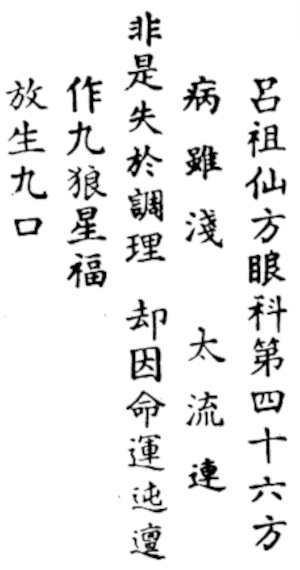 呂祖仙方眼科第四十六方
病雖淺 太流連
非是失於調理 却因命運迍邅
作九狼星福
放生九口